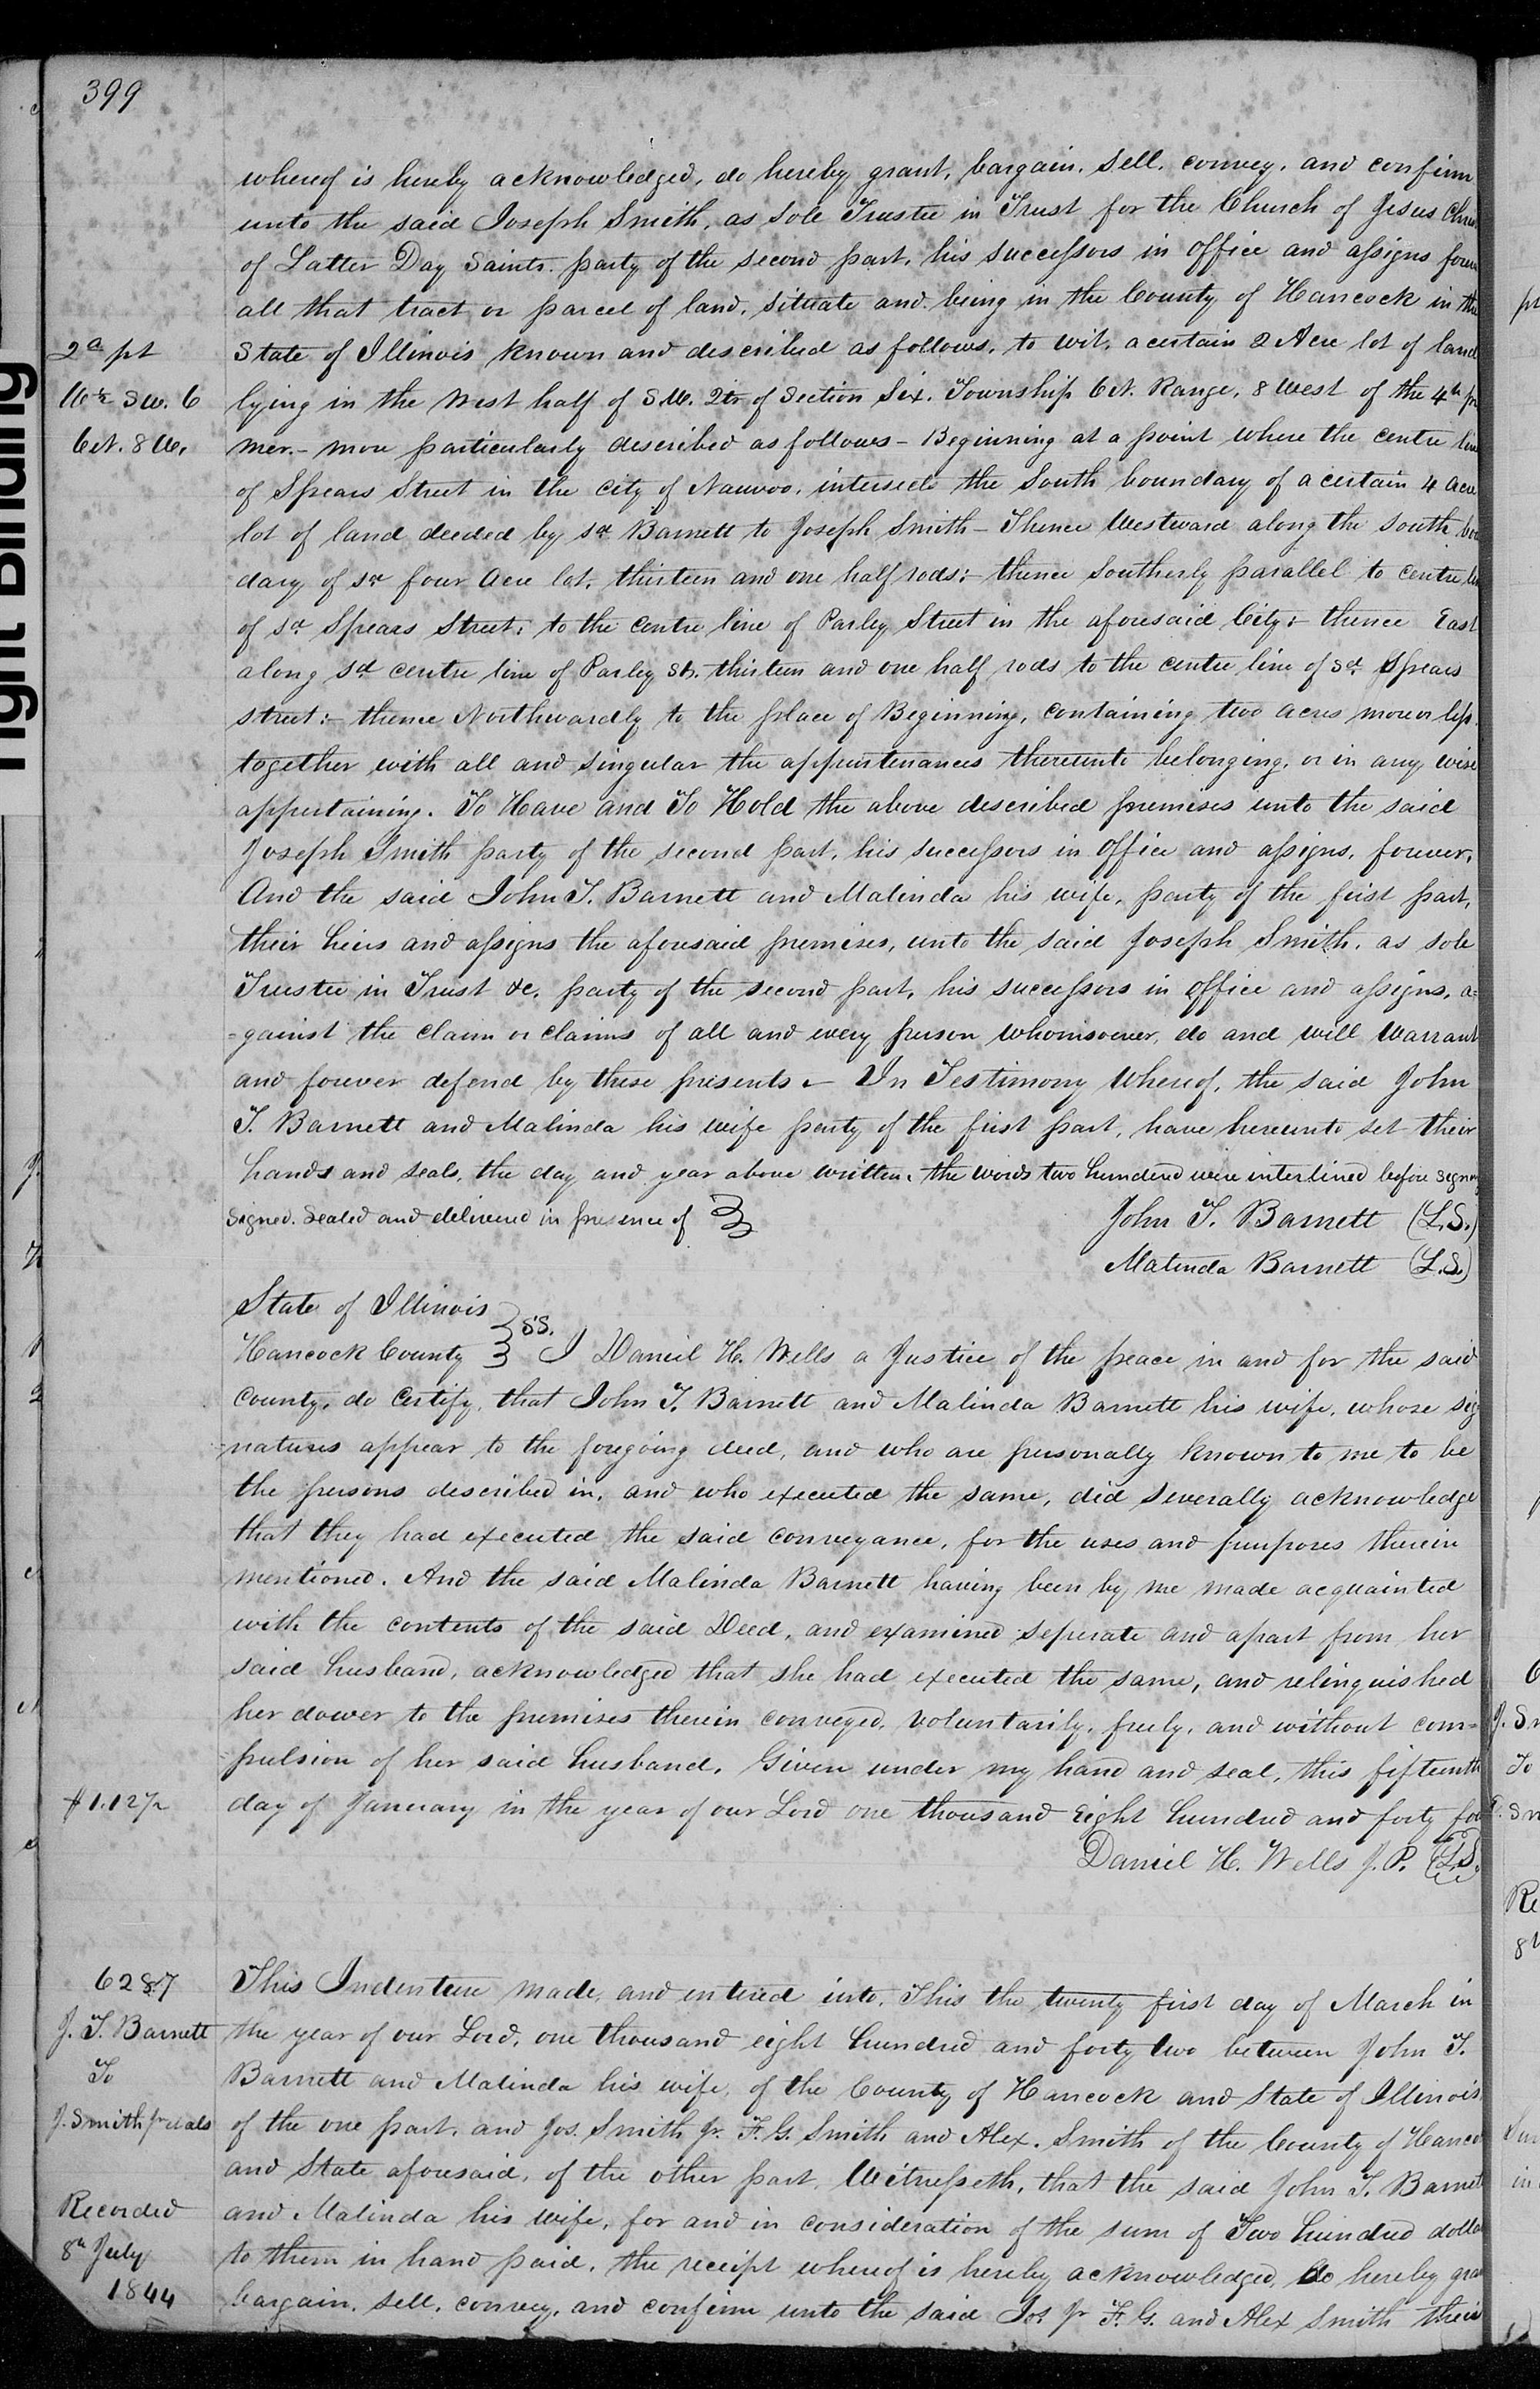 399
whereof is hereby acknowledged, do hereby grant, bargain, sell, convey, and confirm
unto the said Joseph Smith, as sole Trustee in Trust for the Church of Jesus Chris
of Latter Day Saints. party of the second part, his successors in office and assigns forev
all that tract or parcel of land, situate and being in the County of Hancock in the
2a pt
State of Illinois known and described as follows, to wit, a certain 2 Acre lot of land
W ½ SW. 6
lying in the West half of S.W. Qtr of Section Six. Township 6 N. Range, 8 West of the 4th pr
6 N. 8 W.
mer. - more particularly described as follows - Beginning at a point where the centre line
of Spears Street in the city of Nauvoo, intersects the South boundary of a certain 4 acre
lot of land deeded by sd Barnett to Joseph Smith - Thence Westward along the south bou
dary of sd four acre lot, thirteen and one half rods; - thence Southerly parallel to centre lin
of sd Spears Street; to the centre line of Parley Street in the aforesaid City; - thence East
along sd centre line of Parley St. thirteen and one half rods to the centre line of sd Spears
street; - thence Northwardly to the place of Beginning, containing two acres more or less.
together with all and singular the appurtenances thereunto belonging, or in any wise
appertaining. To Have and To Hold the above described premises unto the said
Joseph Smith party of the second part, his successors in office and assigns, forever,
And the said John T. Barnett and Malinda his wife, party of the first part,
their heirs and assigns the aforesaid premises, unto the said Joseph Smith, as sole
Trustee in Trust &c. party of the second part, his successors in office and assigns, a=
=gainst the claim or claims of all and every person whomsoever, do and will Warrant
and forever defend by these presents. - In Testimony Whereof, the said John
T. Barnett and Malinda his wife party of the first part, have hereunto set their
hands and seals, the day and year above written. the words two hundred were interlined before signing
Signed. Sealed and delivered in presence of }
John T. Barnett (L.S.)
Malinda Barnett (L.S.)
State of Illinois
Hancock County } SS. I Daniel H. Wells a Justice of the peace in and for the said
County, do Certify, that John T. Barnett and Malinda Barnett his wife, whose sig
=natures appear to the foregoing deed, and who are personally known to me to be
the persons described in, and who executed the same, did severally acknowledge
that they had executed the said conveyance, for the uses and purposes therein
mentioned. And the said Malinda Barnett having been by me made acquainted
with the contents of the said Deed, and examined seperate and apart from her
said husband, acknowledged that she had executed the same, and relinquished
her dower to the premises therein conveyed, voluntarily, freely, and without com=
=pulsion of her said husband. Given under my hand and seal, this fifteenth
$1.12½
day of January in the year of our Lord one thousand Eight hundred and forty fou
Daniel H. Wells J.P. (L.S.
6287
This Indenture made, and entered into, This the twenty first day of March in
J. T. Barnett
the year of our Lord, one thousand eight hundred and forty two between John T.
To
Barnett and Malinda his wife, of the County of Hancock and State of Illinois
J. Smith jr et als
of the one part, and Jos. Smith Jr. F. G. Smith and Alex. Smith of the County of Hanco
and State aforesaid, of the other part, Witnesseth, that the said John T. Barnet
Recorded
and Malinda his wife, for and in consideration of the sum of Two hundred dolla
8th July
to them in hand paid, the receipt whereof is hereby acknowledged, do hereby gra
1844
bargain, sell, convey, and confirm unto the said Jos. Jr F. G. and Alex Smith their